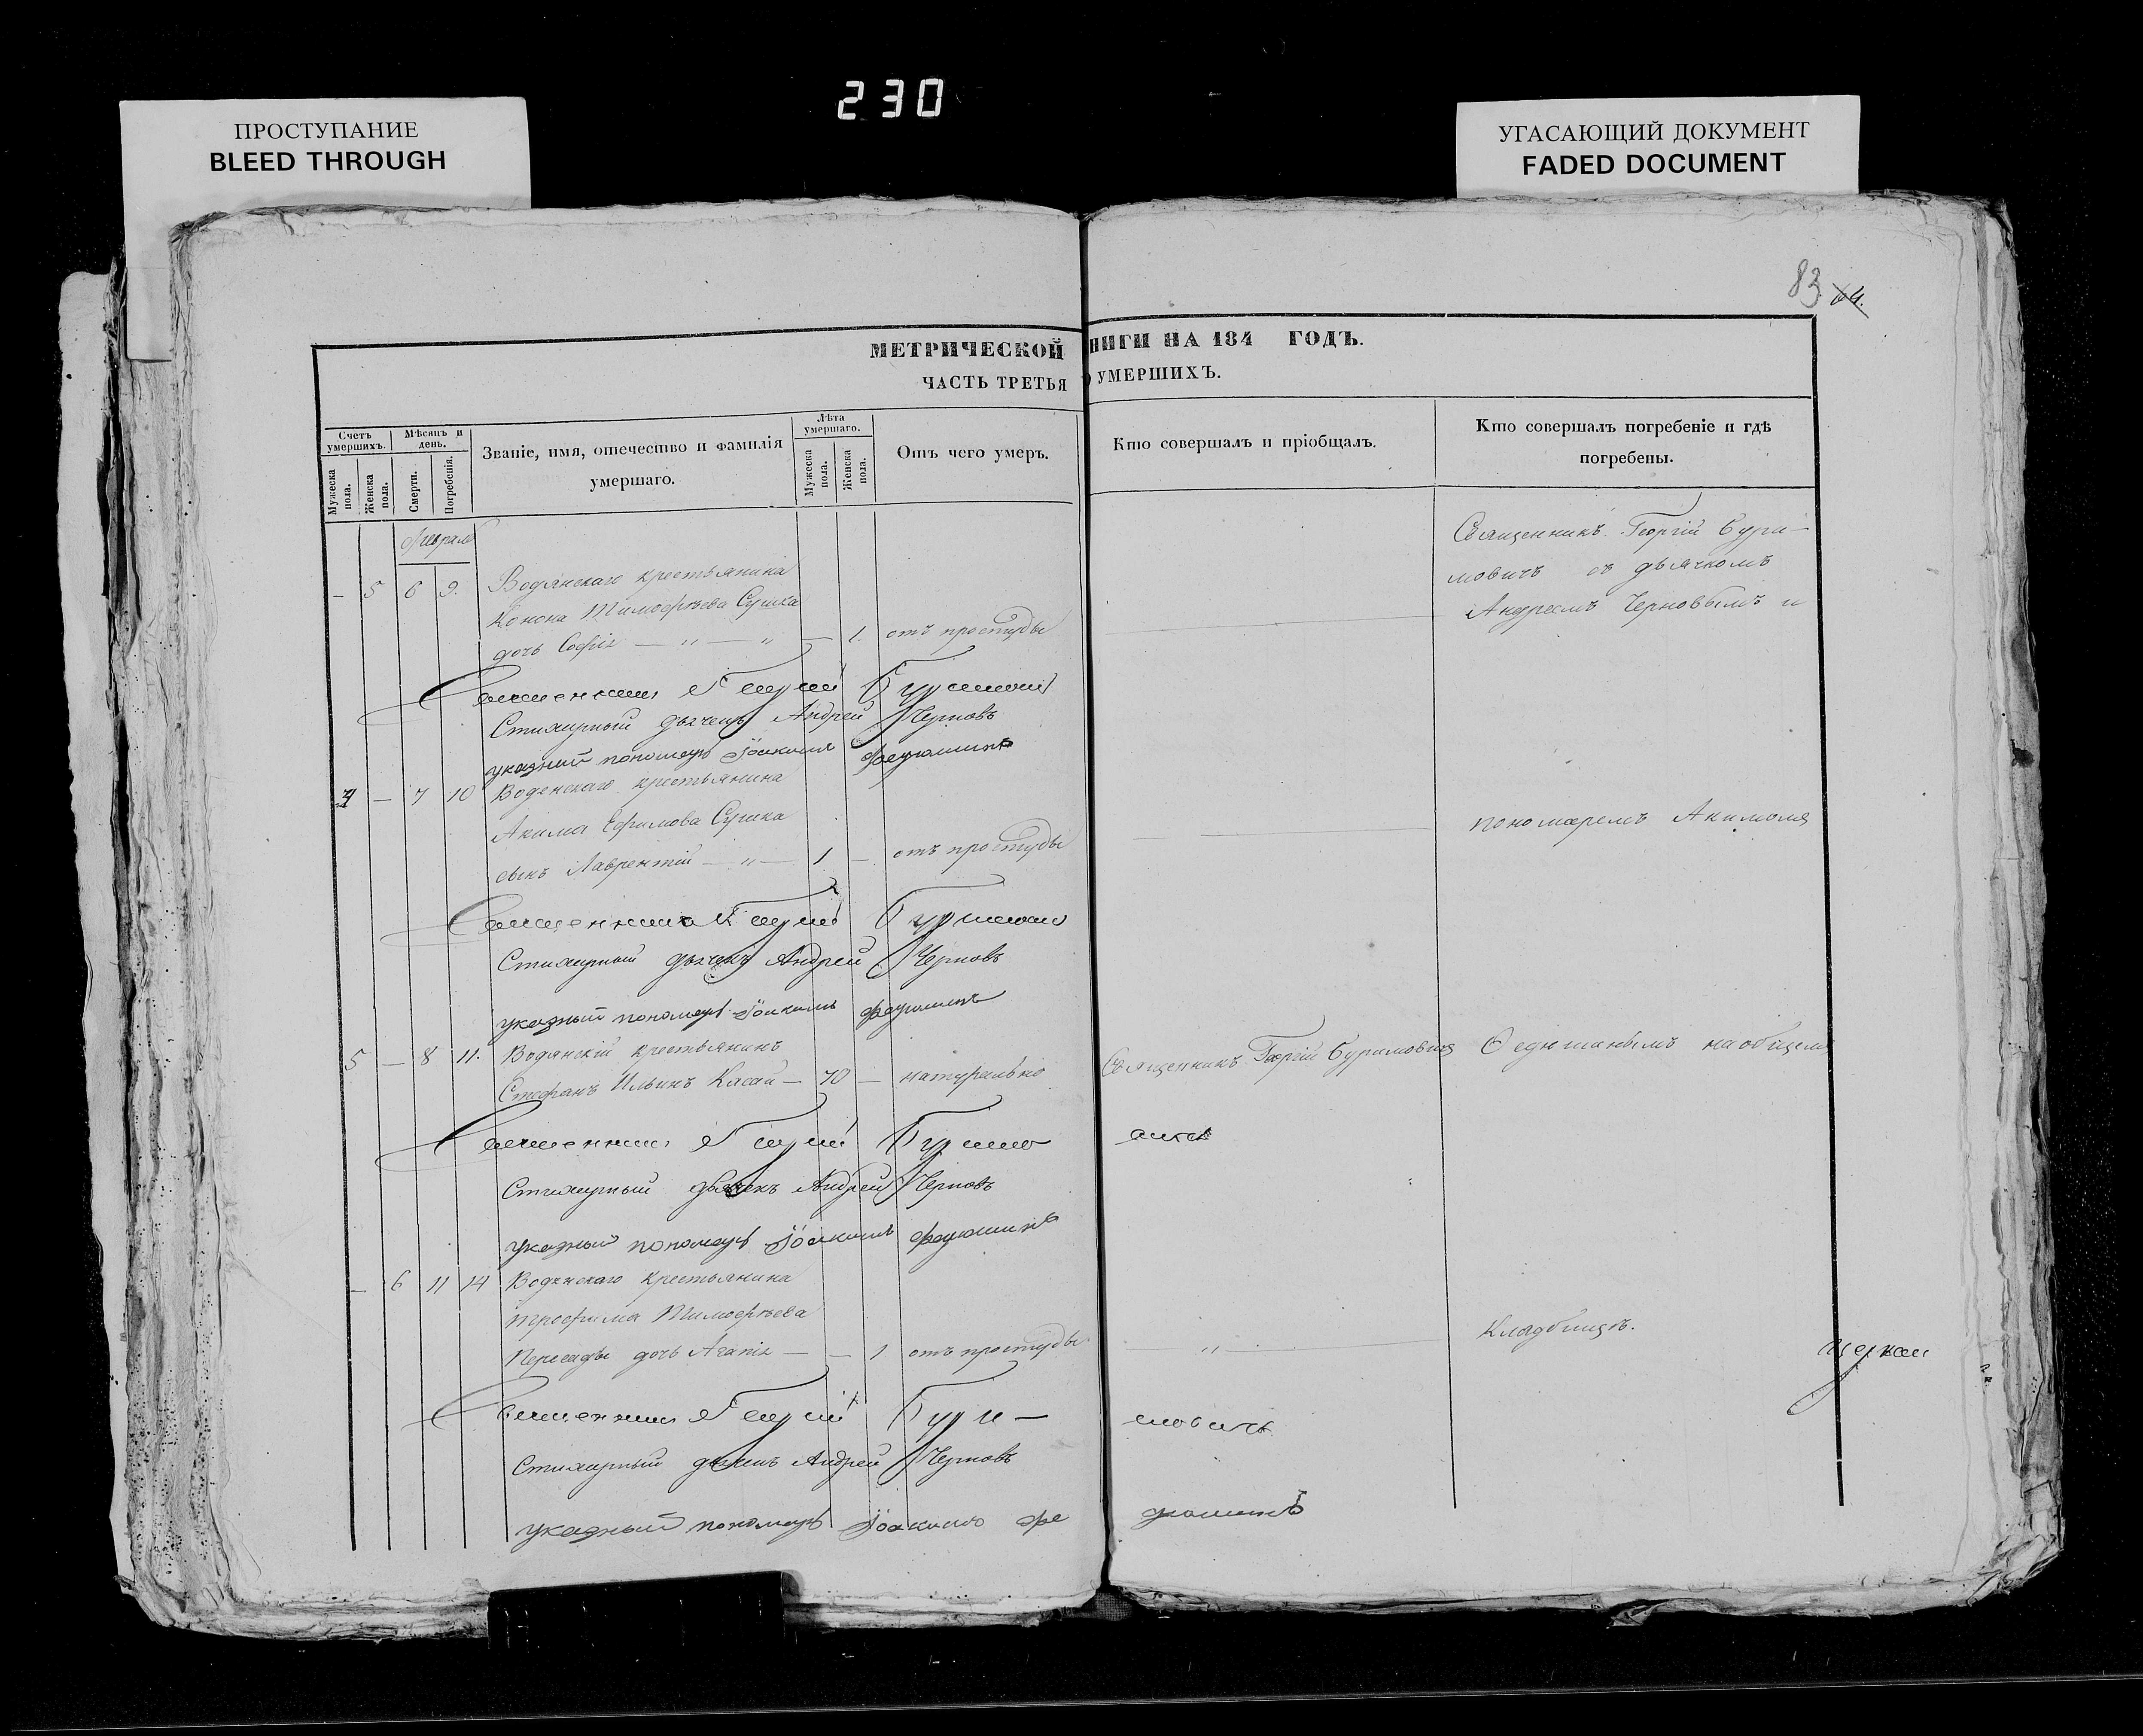 230
ПРОСТУПАНИЕ
BLEED THROUGH
УГАСАЮЩИЙ ДОКУМЕНТ
FADED DOCUMENT
83 64.
МЕТРИЧЕСКОЙ НИГИ НА 184 ГОДЪ.
ЧАСТЬ ТРЕТЬЯ О УМЕРШИХЪ.
Счетъ умершихъ.
Мужеска пола.
Женска пола.
Мѣсяцъ и день.
Смерти.
Погребенія.
Званіе, имя, отечество и фамилія умершаго.
Лѣта умершаго.
Мужеска пола.
Женска пола.
Отъ чего умеръ.
Кто совершалъ и пріобщалъ.
Кто совершалъ погребеніе и гдѣ погребены.
Февраль
— 5 6 9. Водянскаго крестьянина
Конона Тимофѣева Сушка
дочь Софія — „ — „ — 1. отъ простуды
Священникъ Георгій Бури-
мовичъ съ дьячкомъ
Андреемъ Черновымъ и
Священникъ Георгій Буримовичъ
Стихарный дьячекъ Андрей Черновъ
указный пономарь Іоакимъ Федюшинъ
4 — 7 10 Водянскаго крестьянина
Акима Ефимова Сушка
сынъ Лаврентій — „ — 1 — отъ простуды
пономаремъ Акимомъ
Священникъ Георгій Буримовичъ
Стихарный дьячекъ Андрей Черновъ
указный пономарь Іоакимъ Федюшинъ
5 — 8 11. Водянскій крестьянинъ
Стефанъ Ильинъ Касай — 70 — натурально
Священникъ Георгій Буримовичъ
Федюшинымъ на общемъ
Священникъ Георгій Буримовичъ
Стихарный дьячекъ Андрей Черновъ
указный пономарь Іоакимъ Федюшинъ
— 6 11 14 Водянскаго крестьянина
Трофима Тимофѣева
Пересады дочь Агапія — — 1 отъ простуды „
кладбищѣ.
Священникъ Георгій Бури— мовичъ
Стихарный дьячекъ Андрей Черновъ
указный пономарь Іоакимъ Фе дюшинъ